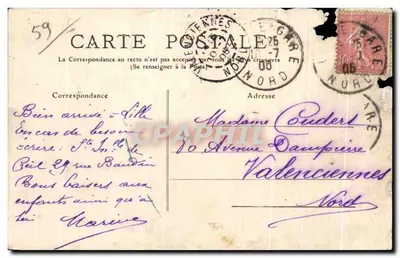 59
CARTE POSTALE
La Correspondance au recto n'est pas acceptée par tous les pays étrangers
(Se renseigner à la Poste)
VALENCIENNES
NORD
GARE
25
-7
05
NORD
GARE
05
NORD
GARE
Correspondance
Adresse
Bien arrivé à Lille
En cas de besoin
écrire : Ste
29 rue Baudin
Bons baisers aux
enfants ainsi qu'à
Marine
Madame Couders
70 Avenue Dampierre
Valenciennes
Nord
DELCAMPHIL